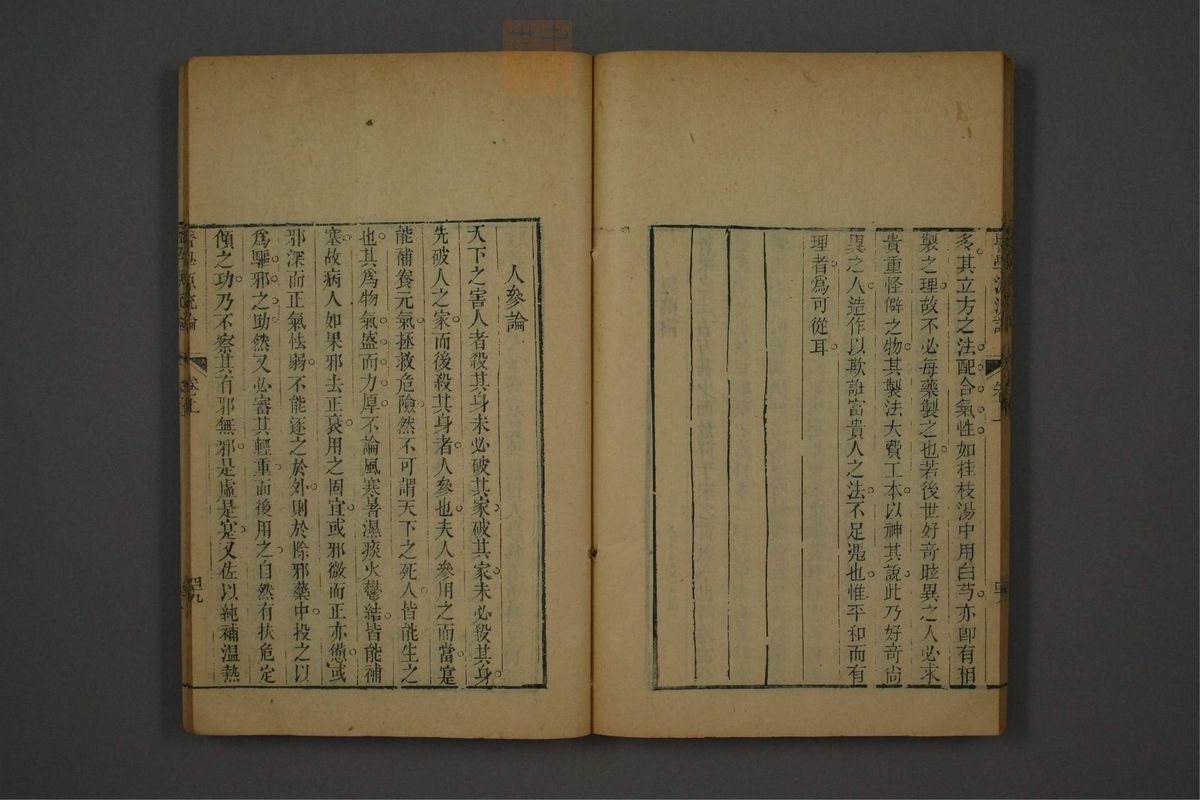 醫學源流論 卷上
多其立方之法配合氣性如桂枝湯中用白芍亦卽有相
製之理故不必每藥製之也若後世好奇眩異之人必求
貴重怪僻之物其製法大費工本以神其說此乃好奇尚
異之人造作以欺誑富貴人之法不足凴也惟平和而有
理者爲可從耳
人參論
天下之害人者殺其身未必破其家破其家未必殺其身
先破人之家而後殺其身者人參也夫人參用之而當寔
能補養元氣拯救危險然不可謂天下之死人皆能生之
也其爲物氣盛而力厚不論風寒暑濕痰火鬱結皆能補
塞故病人如果邪去正衰用之固宜或邪微而正亦憊或
邪深而正氣怯弱不能逐之於外則於除邪藥中投之以
爲驅邪之助然又必審其輕重而後用之自然有扶危定
傾之功乃不察其有邪無邪是虛是寔又佐以純補溫熱
醫學源流論 卷上 四九